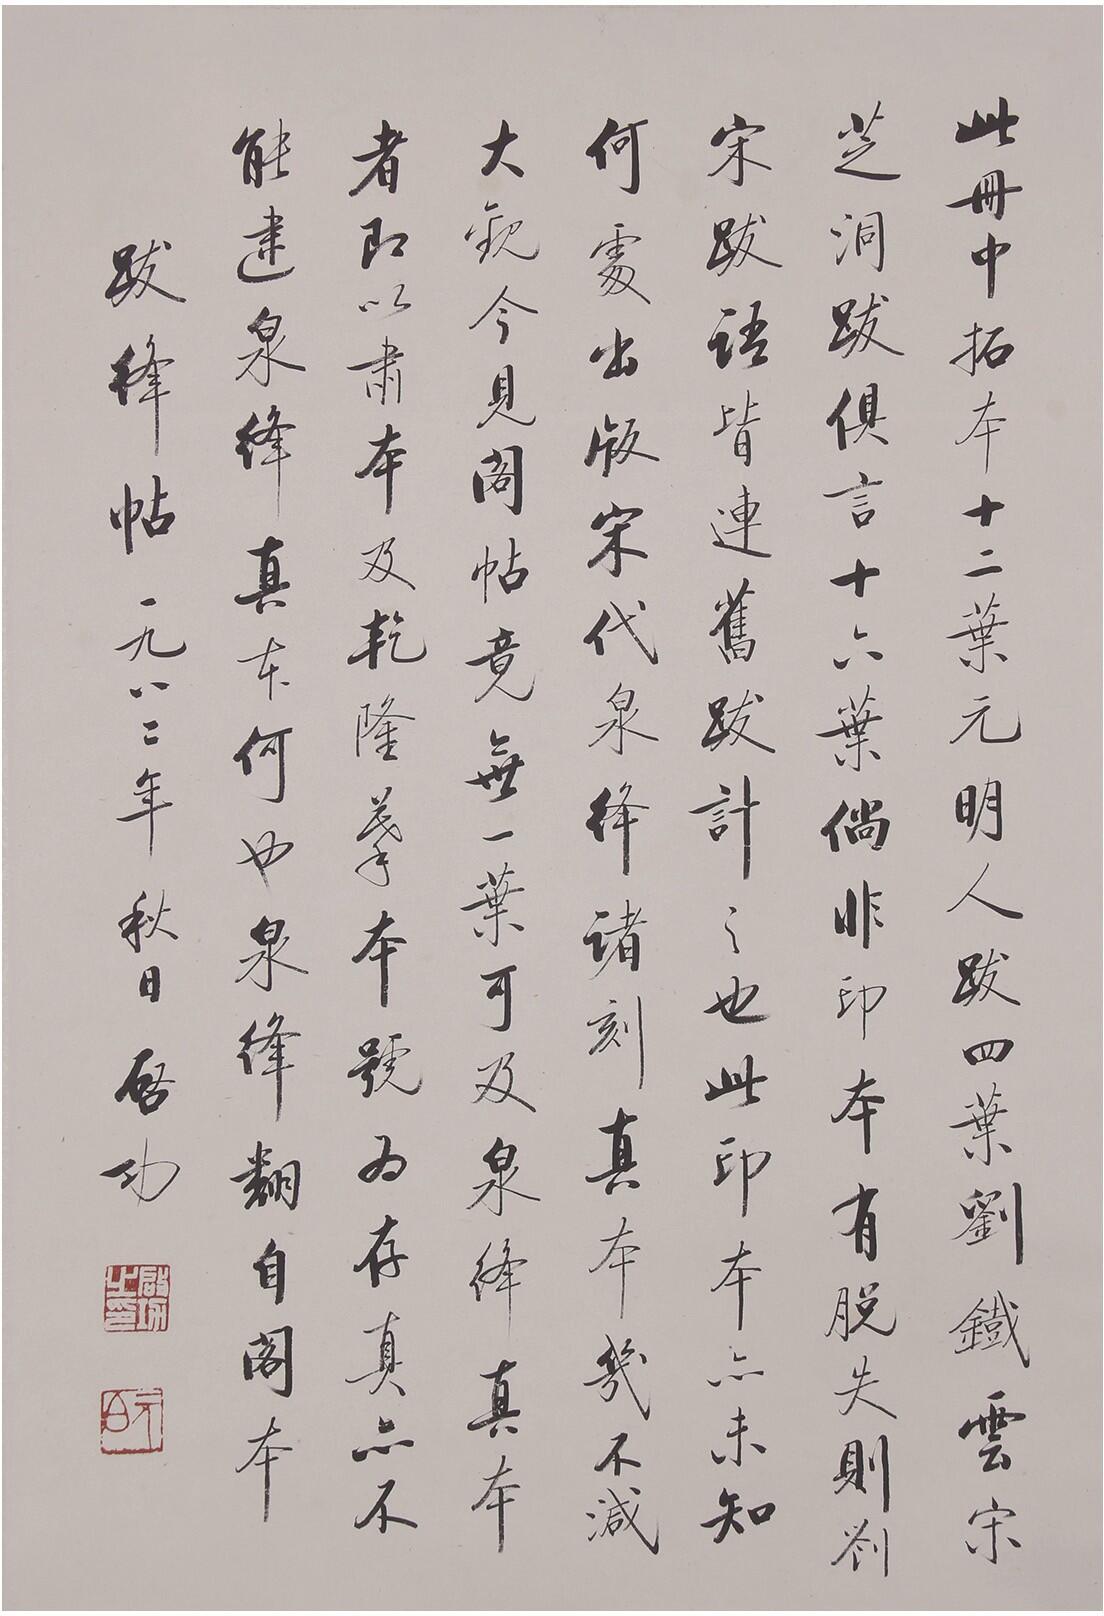 此冊中拓本十二葉元明人跋四葉劉鐵雲宋
芝洞跋俱言十六葉倘非印本有脱失則劉
宋跋語皆連舊跋計之也此印本亦未知
何處出版宋代泉絳諸刻真本幾不減
大觀今見閣帖竟無一葉可及泉絳真本
者即以肅本及乾隆摹本號為存真亦不
能逮泉絳真本何也泉絳翻自閣本
跋絳帖 一九八二年秋日 啓功
啟功之印
元白